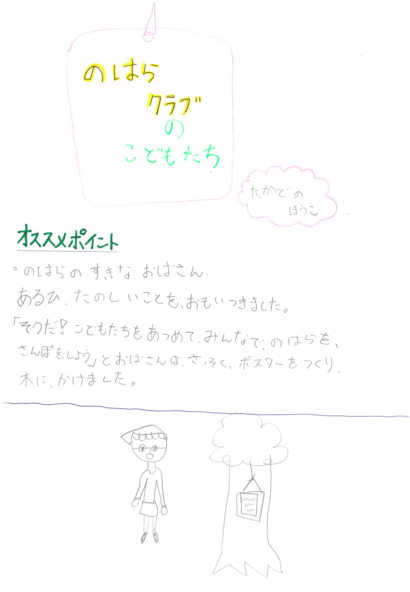 のはら
クラブ
の
こどもたち
たかどの
ほうこ
オススメポイント
・のはらの すきな おばさん.
あるひ、たのしいことを、おもいつきました。
「そうだ!こどもたちをあつめて、みんなで、のはらを、
さんぽをしよう」とおばさんは、さっそく、ポスターをつくり、
木に、かけました。